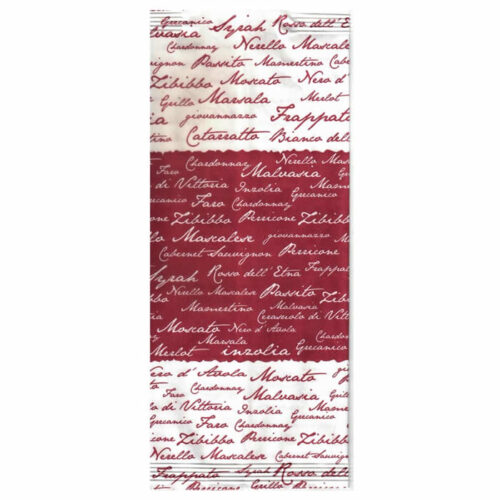 Grecanico Syrah Rosso dell' Etna
Malvasia
Chardonnay Nerello Mascalese
Sauvignon Passito Mamertino Cabernet
Zibibbo Moscato Nero d'
Grillo Marsala Merlot
giovannazzo Frappato
Catarratto Bianco dell
Chardonnay Nerello Mascalese
Faro Malvasia
di Vittoria Inzolia Grecanico
Grecanico Faro Chardonnay
Zibibbo Perricone Zibibbo
Mascalese giovannazzo
Cabernet Sauvignon Perricone
Syrah Rosso dell' Etna Frappato
Nerello Mascalese Passito
Mamertino Malvasia
Cerasuolo di Vittoria
Moscato Nero d' Avola
Marsala Grecanico
Merlot inzolia
Nero d' Avola Moscato
Chardonnay Malvasia
di Vittoria Inzolia
Grecanico Faro Grecanico
Zibibbo Perricone Zibibbo
Nerello Mascalese Cabernet Sauvignon
Frappato Syrah Rosso dell' Etna